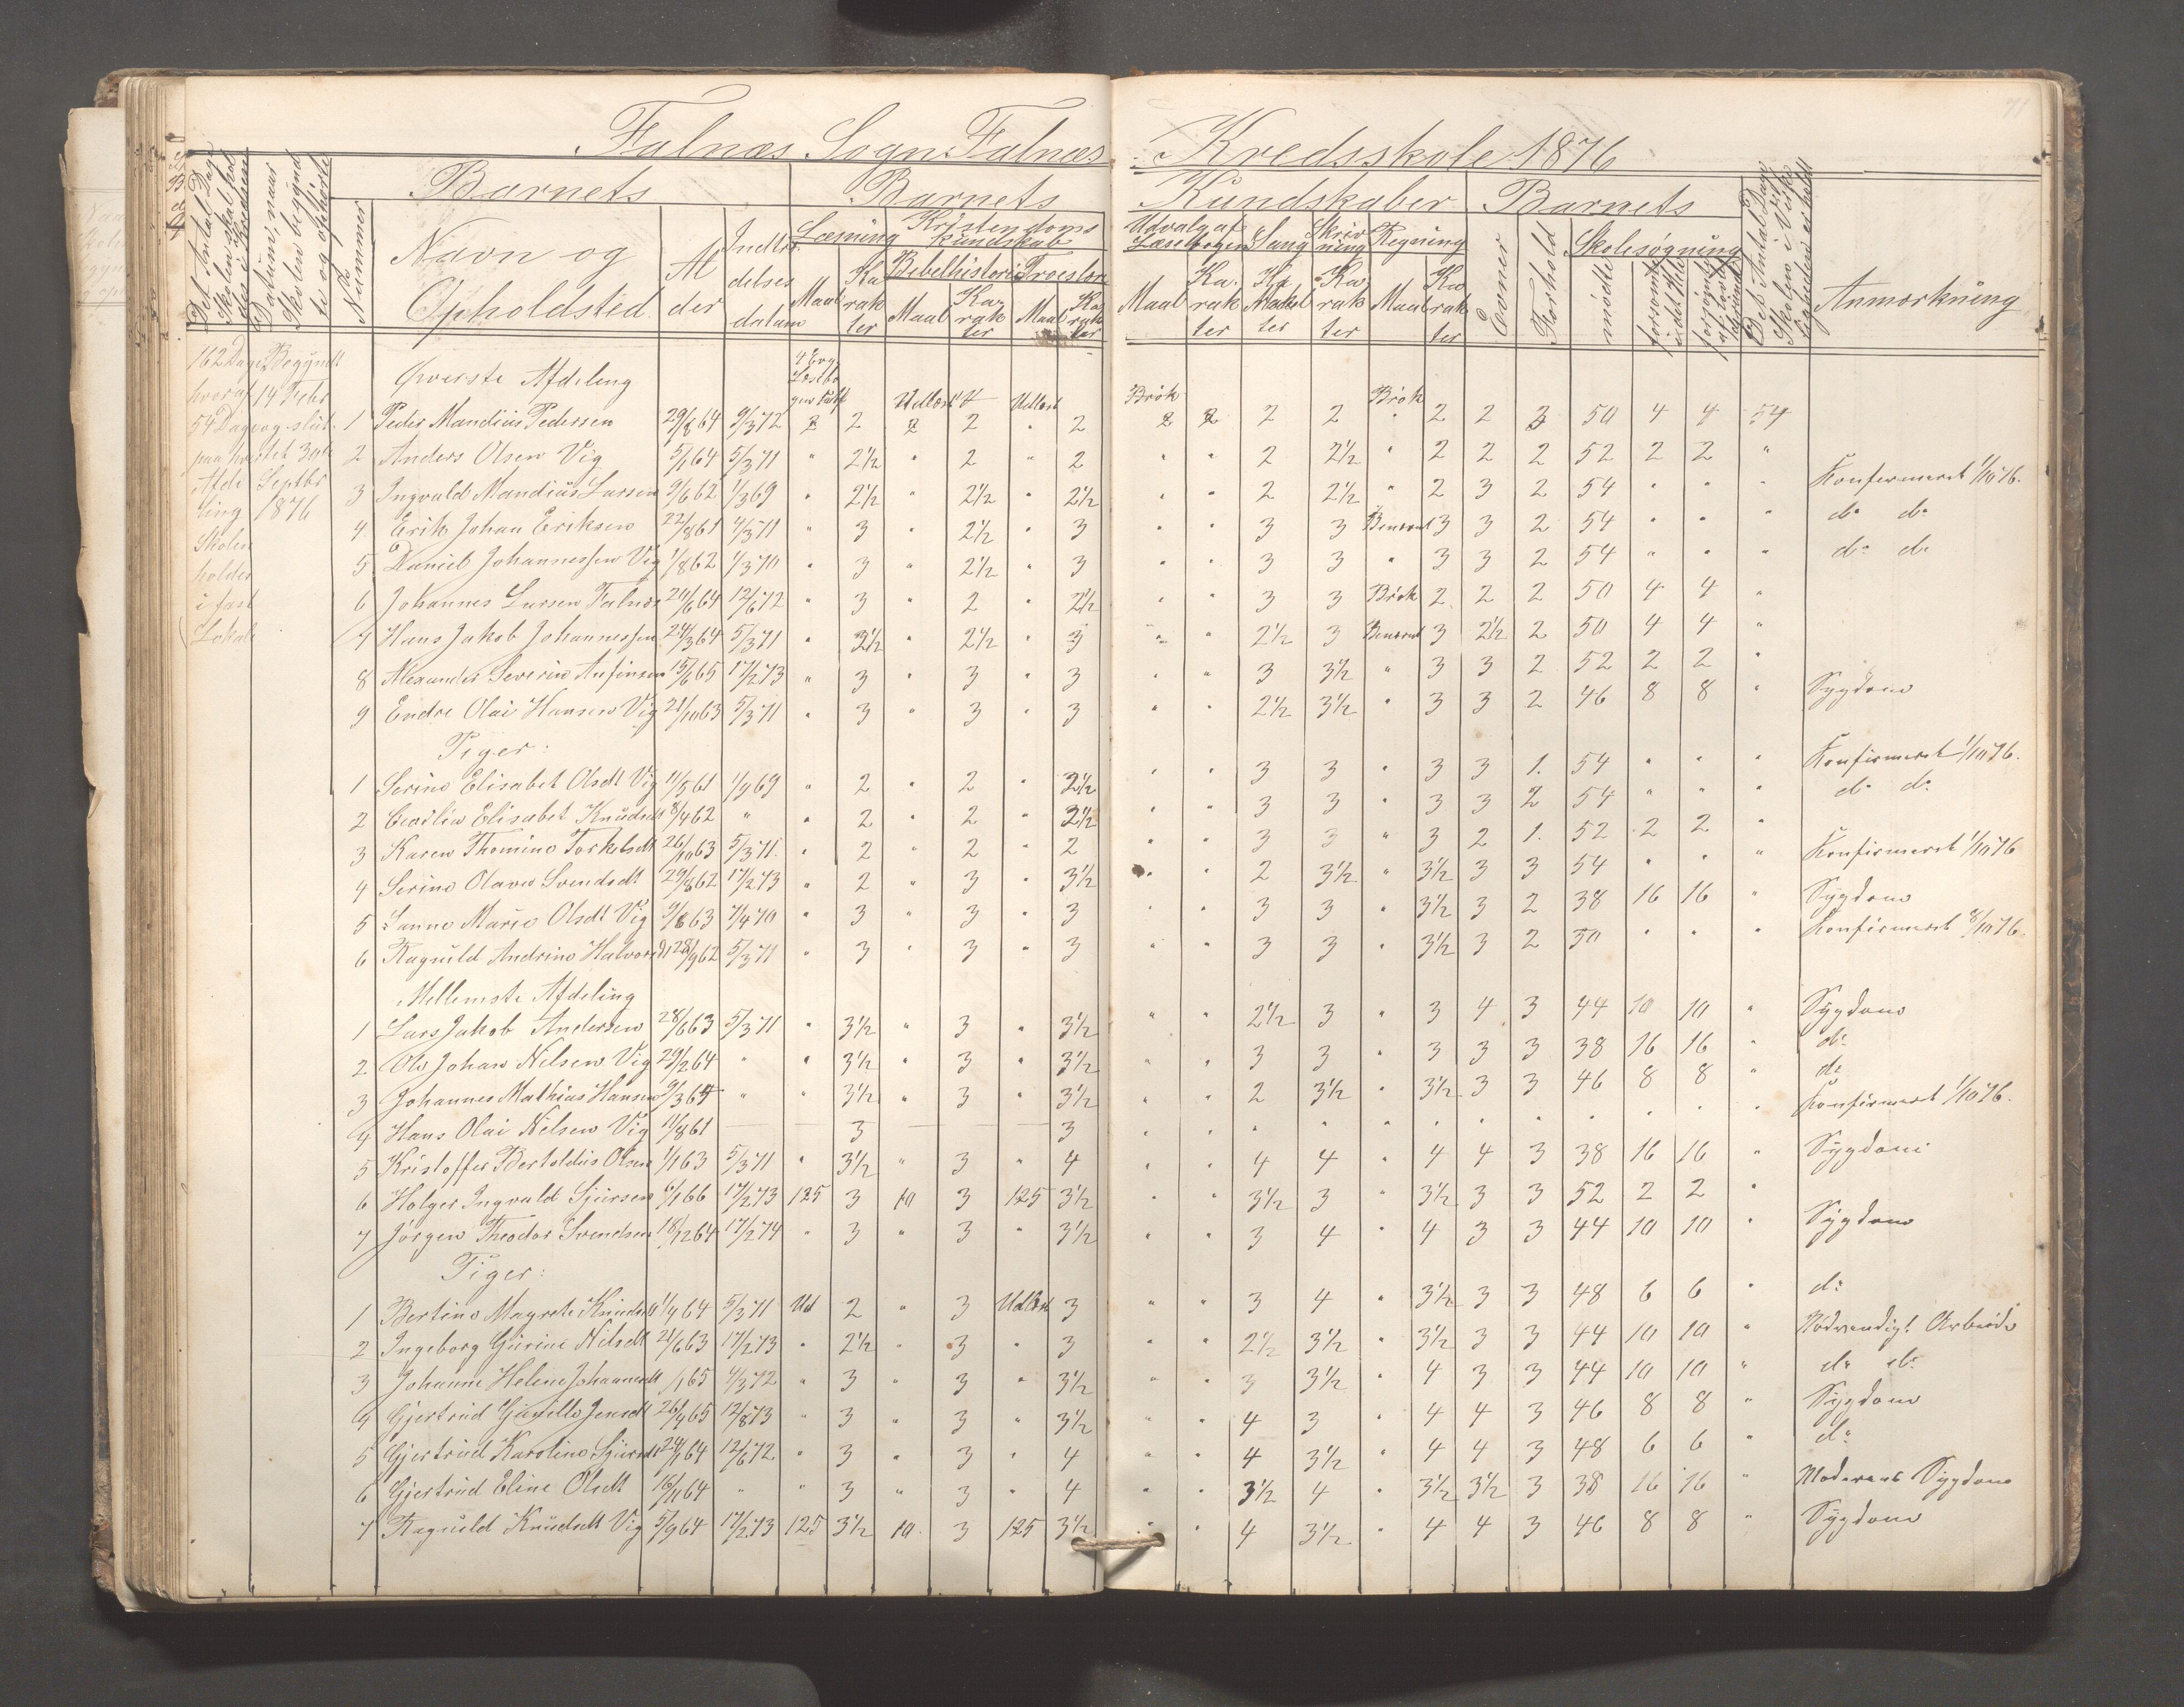 71
Falnæs Sogn Falnæs Kredsskole 1876
Det Antal Dage Skolen skal holdes i Kredsen
Datum, naar Skolen begyndte og ophørte
Nummer
Barnets
Navn og Opholdsted
Alder
Indtrædelses datum
Barnets Kundskaber
Læsning
Maal
Karakter
Kristendoms kundskab
Bibelhistorie
Maal
Karakter
Troeslære
Maal
Karakter
Udvalg af Læsebogen
Maal
Karakter
Sang
Karakter
Skrivning
Karakter
Regning
Maal
Karakter
Barnets
Evner
Forhold
Skolesøgning
mødte
forsømte i det Hele
forsømte af lovl. Grund
Det Antal Dage Skolen i Virkeligheden er holdt
Anmærkning
162 Dage hvoraf 54 Dage paa hver Afdeling Skolen holdes i fast Lokale
Begyndt 14 Febr og sluttet 30te Septbr 1876
Øverste Afdeling
1 Peder Mandius Pedersen 29/8 64 9/3 72 2 2 Udlæst 2 2 Udlæst 2 Brøk 2 2 2 2 Brøk 2 2 3 50 4 4 54
2 Anders Olsen Vig 5/1 64 5/3 71 " 2½ " 2 " 2 " " 2 2½ " 2 2 2 52 2 2 "
3 Ingvald Mandius Larsen 9/6 62 1/3 69 " 2½ " 2½ " 2½ " " 2 2½ " 2 3 2 54 " " " Konfirmeret 1/10 76.
4 Erik Johan Eriksen 22/8 61 4/3 71 " 3 " 2½ " 3 " " 3 3 Benævnt 3 3 2 54 " " " do do
5 Daniel Johannessen Vig 1/8 62 1/3 70 " 3 " 2½ " 3 " " 3 3 " 3 3 2 54 " " " do do
6 Johannes Larsen Falnæs 20/6 64 12/6 72 " 3 " 2 " 2½ " " 3 3 Brøk 2 2 2 50 4 4 "
7 Hans Jakob Johannessen 24/3 64 5/3 71 " 2½ " 2½ " 3 " " 2½ 3 Benævnt 3 2½ 2 50 4 4 "
8 Alexander Severin Anfinsen 15/6 65 17/2 73 " 3 " 3 " 3 " " 3 3½ " 3 3 2 52 2 2 "
9 Endre Olai Hansen Vig 21/10 63 5/3 71 " 3 " 3 " 3 " " 2½ 3½ " 3 3 2 46 8 8 " Sygdom
Piger.
1 Serine Elisabet Olsdt Vig 11/5 61 1/9 69 " 2 " 2 " 2½ " " 3 3 " 3 3 1. 54 " " " Konfirmeret 1/10 76.
2 Cecilie Elisabet Knudsdt 8/4 62 " " 2 " 2 " 2½ " " 3 3 " 3 3 2 54 " " " do do
3 Karen Thomine Torkelsdt 26/10 63 5/3 71. " 2 " 2 " 2 " " 3 3 " 3 2 1. 52 2 2 "
4 Serine Olava Svendsdt 29/8 62 17/2 73 " 2 " 3 " 3½ " " 2 3½ " 3½ 3 3 54 " " " Konfirmeret 1/10 76
5 Sanne Marie Olsdt Vig 9/8 63 7/4 70 " 3 " 3 " 3 " " 3 3 " 3½ 3 2 38 16 16 " Sygdom
6 Ragnild Andrine Halvorsdt 28/9 62 5/3 71 " 3 " 3 " 3 " " 3 3 " 3½ 3 2 50 " " " Konfirmeret 8/10 76.
Mellemste Afdeling
1 Lars Jakob Andersen 28/6 63 5/3 71 " 3½ " 3 " 3½ " " 2½ 3 " 3 4 3 44 10 10 " Sygdom
2 Ole Johan Nilsen Vig 29/2 64 " " 3½ " 3 " 3½ " " 3 3 " 3 3 3 38 16 16 " do
3 Johannes Mathias Hansen 9/3 64 " " 3½ " 3 " 3½ " " 2 3½ " 3½ 3 3 46 8 8 " do
4 Hans Olai Nilsen Vig 11/8 61 3 3 " " " " " " " " " " " " Konfirmeret 1/10 76.
5 Kristoffer Bertoldius Olsen 1/1 63 5/3 71 " 3½ " 3 " 4 " " 4 4 " 4 4 3 38 16 16 " Sygdom
6 Holger Ingvald Sjursen 6/1 66 17/2 73 125 3 10 3 125 3½ " " 3½ 3 " 3½ 3 3 52 2 2 "
7 Jørgen Theodor Svendsen 18/12 64 17/2 74 " 3 " 3 " 3½ " " 3 4 " 4 3 3 44 10 10 " Sygdom
Piger:
1 Bertine Magrete Knudsdt 1/9 64 5/3 71 Ud 2 " 3 Udlæst 3 " " 3 4 " 3½ 3 3 48 6 6 " do
2 Ingeborg Gurine Nilsdt 21/6 63 17/2 73 " 2½ " 3 " 3 " " 2½ 3½ " 3½ 3 3 44 10 10 " Nødvendigt Arbeide
3 Johanne Heline Johannesdt /1 65 4/3 72 " 3 " 3 " 3½ " " 3 3½ " 4 3 3 44 10 10 " do do
4 Gjertrud Gunille Jensdt 26/9 65 12/8 73 " 3 " 3 " 3½ " " 4 3 " 4 4 3 46 8 8 " Sygdom
5 Gjertrud Karoline Sjursdt 24/1 64 12/6 72 " 3 " 3 " 4 " " 4 3½ " 4 4 3 48 6 6 " do
6 Gjertrud Eline Olsdt 16/11 64 " " 3 " 3 " 4 " " 3½ 4 " 3½ 3½ 3 38 16 16 " Moderens Sygdom
7 Ragnild Knudsdt Vig 5/9 64 17/2 73 125 3½ 10. 3 125 3½ " " 4 3½ " 4 4 3 46 8 8 " Sygdom